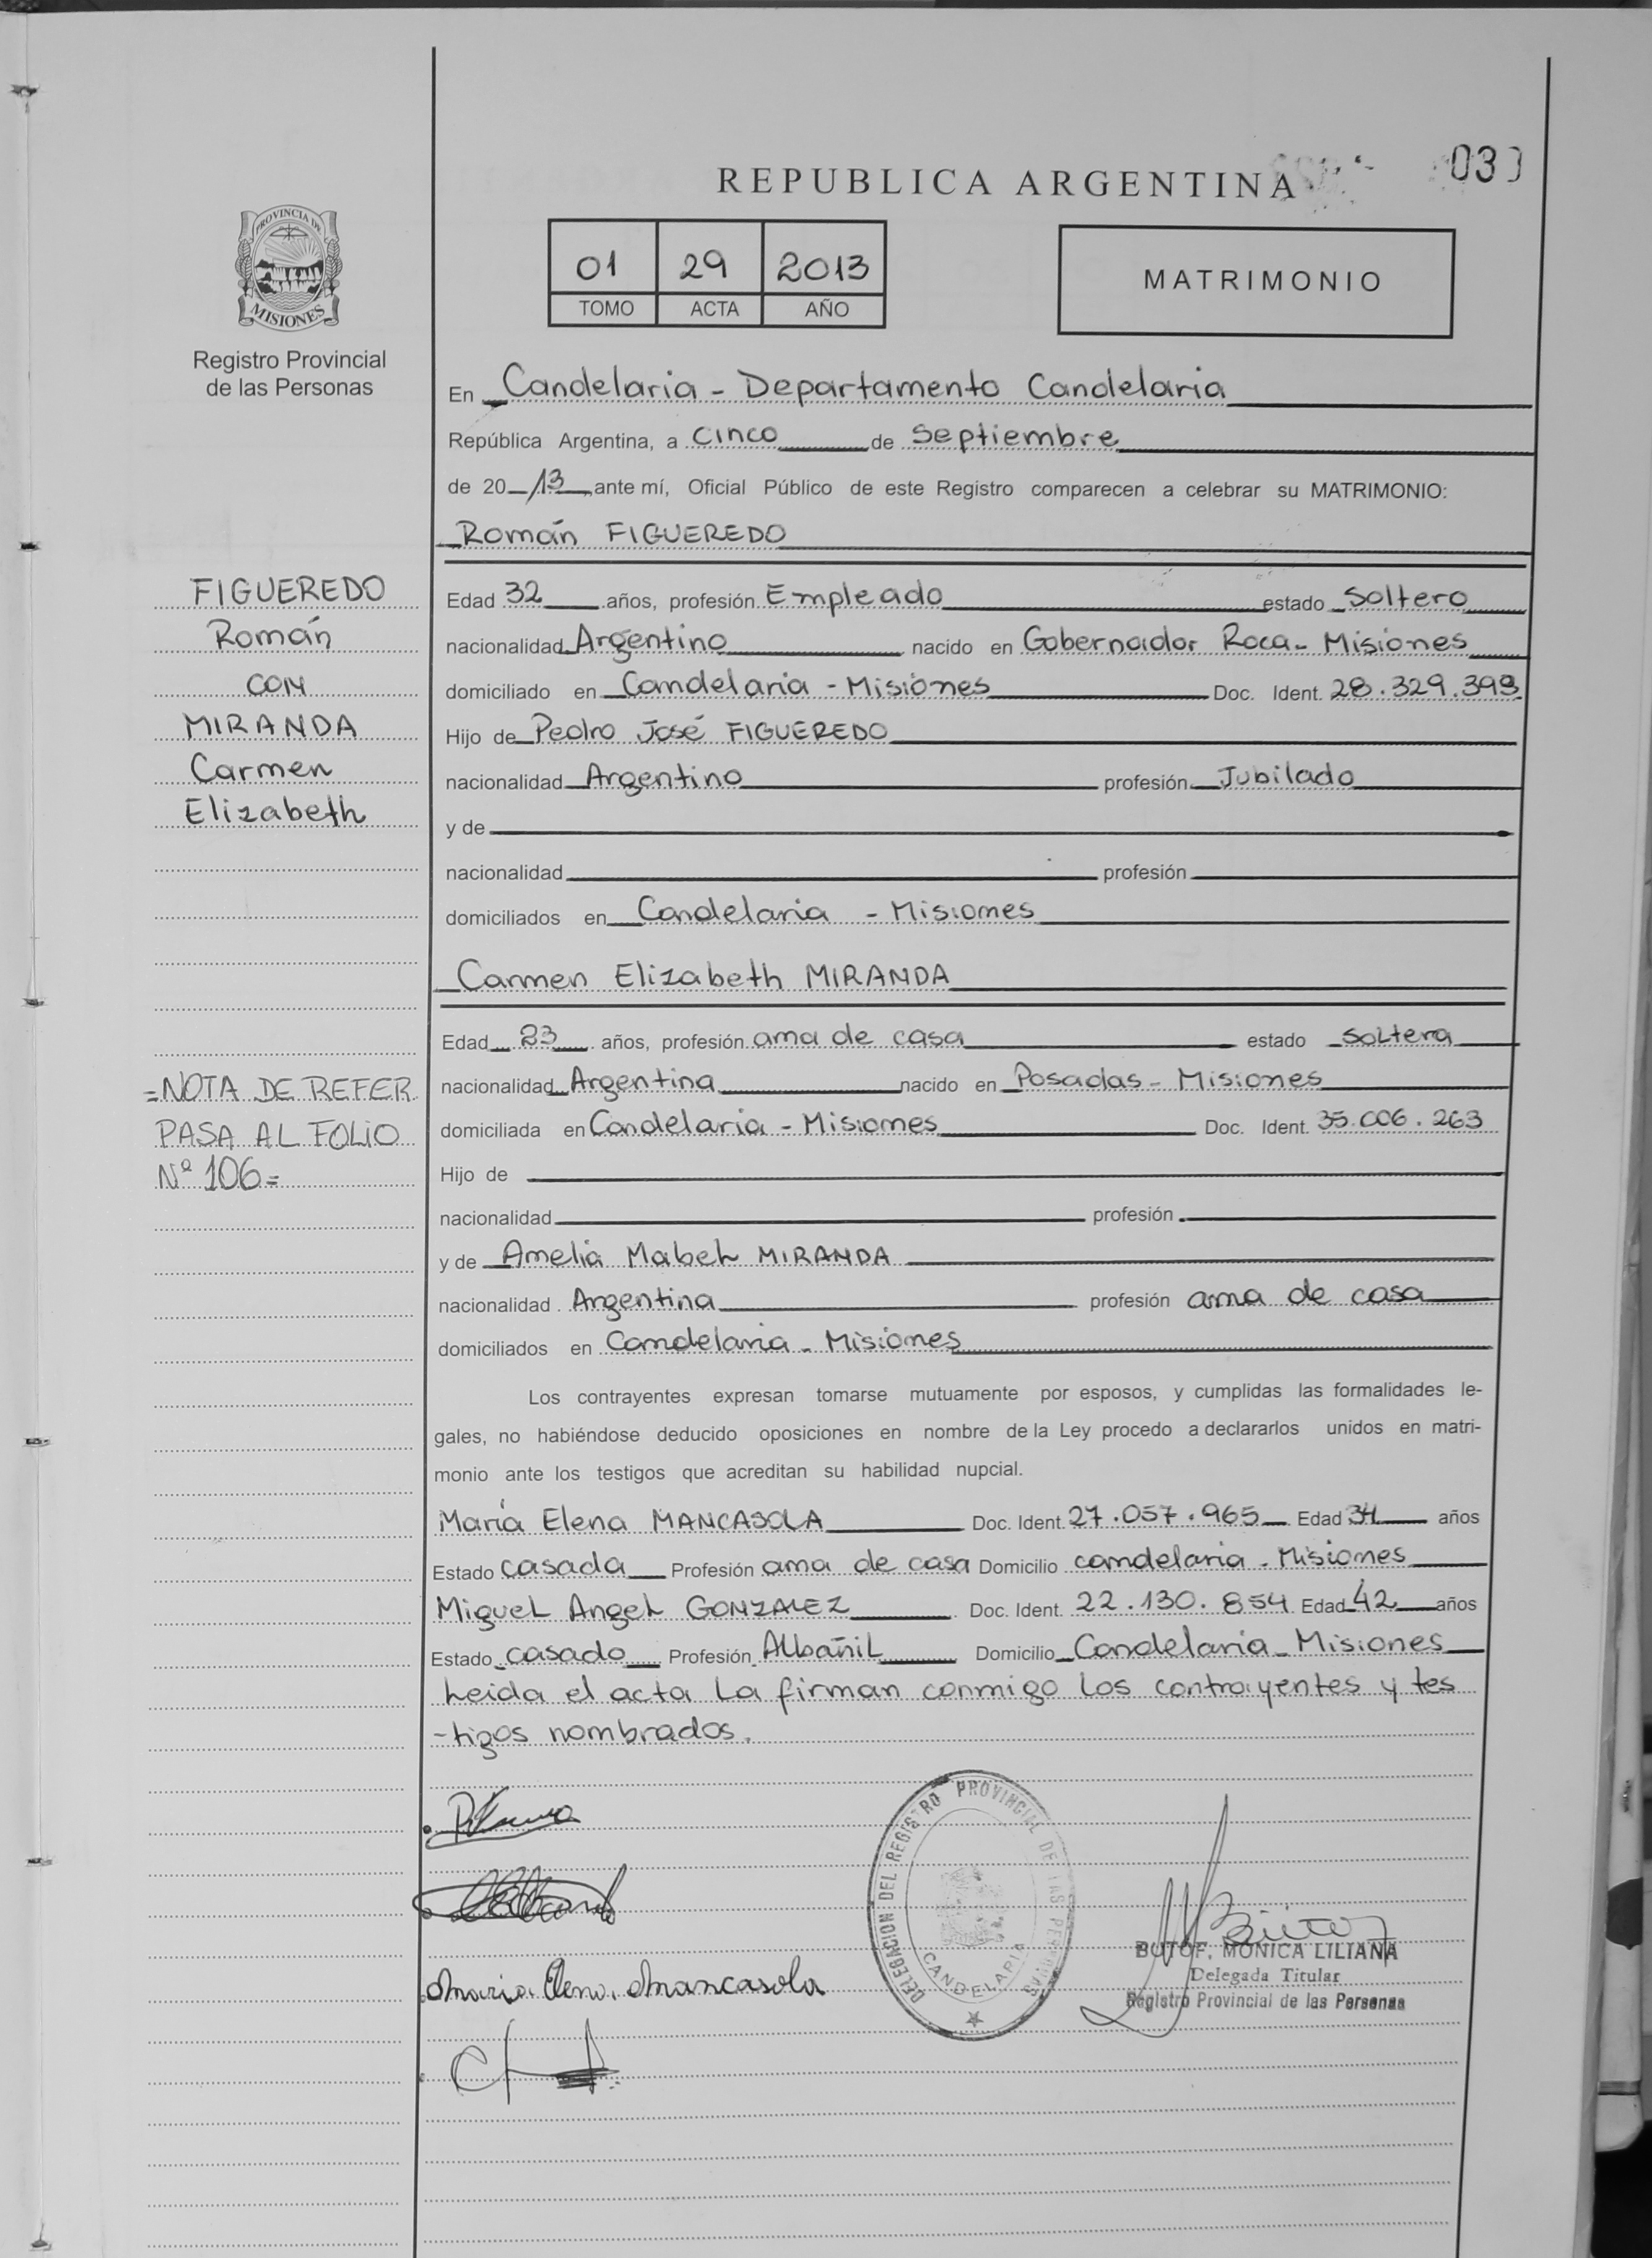 REPUBLICA ARGENTINA
03
PROVINCIA DE
MISIONES
Registro Provincial
de las Personas
01 29 2013
TOMO ACTA AÑO
MATRIMONIO
En Candelaria - Departamento Candelaria
República Argentina, a cinco de Septiembre
de 20 13 ante mí, Oficial Público de este Registro comparecen a celebrar su MATRIMONIO:
Román FIGUEREDO
FIGUEREDO
Román
CON
MIRANDA
Carmen
Elizabeth
Edad 32 años, profesión Empleado estado Soltero
nacionalidad Argentino nacido en Gobernador Roca - Misiones
domiciliado en Candelaria - Misiones Doc. Ident. 28.329.393
Hijo de Pedro José FIGUEREDO
nacionalidad Argentino profesión Jubilado
y de
nacionalidad profesión
domiciliados en Candelaria - Misiones
Carmen Elizabeth MIRANDA
Edad 23 años, profesión ama de casa estado soltera
nacionalidad Argentina nacido en Posadas - Misiones
domiciliada en Candelaria - Misiones Doc. Ident. 35.006.263
Hijo de
nacionalidad profesión
y de Amelia Mabel MIRANDA
nacionalidad Argentina profesión ama de casa
domiciliados en Candelaria - Misiones
=NOTA DE REFER
PASA AL FOLIO
Nº 106=
Los contrayentes expresan tomarse mutuamente por esposos, y cumplidas las formalidades le-
gales, no habiéndose deducido oposiciones en nombre de la Ley procedo a declararlos unidos en matri-
monio ante los testigos que acreditan su habilidad nupcial.
María Elena MANCASOLA Doc. Ident. 27.057.965 Edad 34 años
Estado casada Profesión ama de casa Domicilio candelaria - Misiones
Miguel Angel GONZALEZ Doc. Ident. 22.130.854 Edad 42 años
Estado casado Profesión Albañil Domicilio Candelaria - Misiones
Leida el acta la firman conmigo los contrayentes y tes
-tigos nombrados.
DELEGACION DEL REGISTRO PROVINCIAL DE LAS PERSONAS
CANDELARIA
BUTOF, MONICA LILIANA
Delegada Titular
Registro Provincial de las Personas
Maria Elena Mancasola